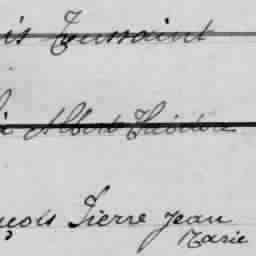 is Toussaint
Albert Théodore
çois Pierre Jean
Marie